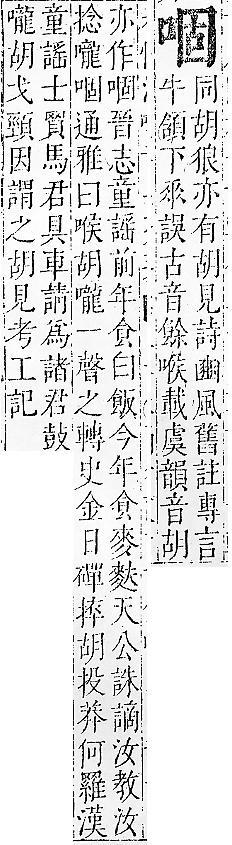 㗅
同胡狼亦有胡見詩豳風舊註專言
牛頷下乑誤古音餘喉載虞韻音胡
亦作㗅晉志童謡前年食白飯今年食麥麩天公誅謫汝教汝
捻嚨㗅通雅曰喉胡嚨一聲之轉史金日磾捽胡投莽何羅漢
童謡士賢馬君具車請爲諸君鼓
嚨胡戈頸因謂之胡見考工記